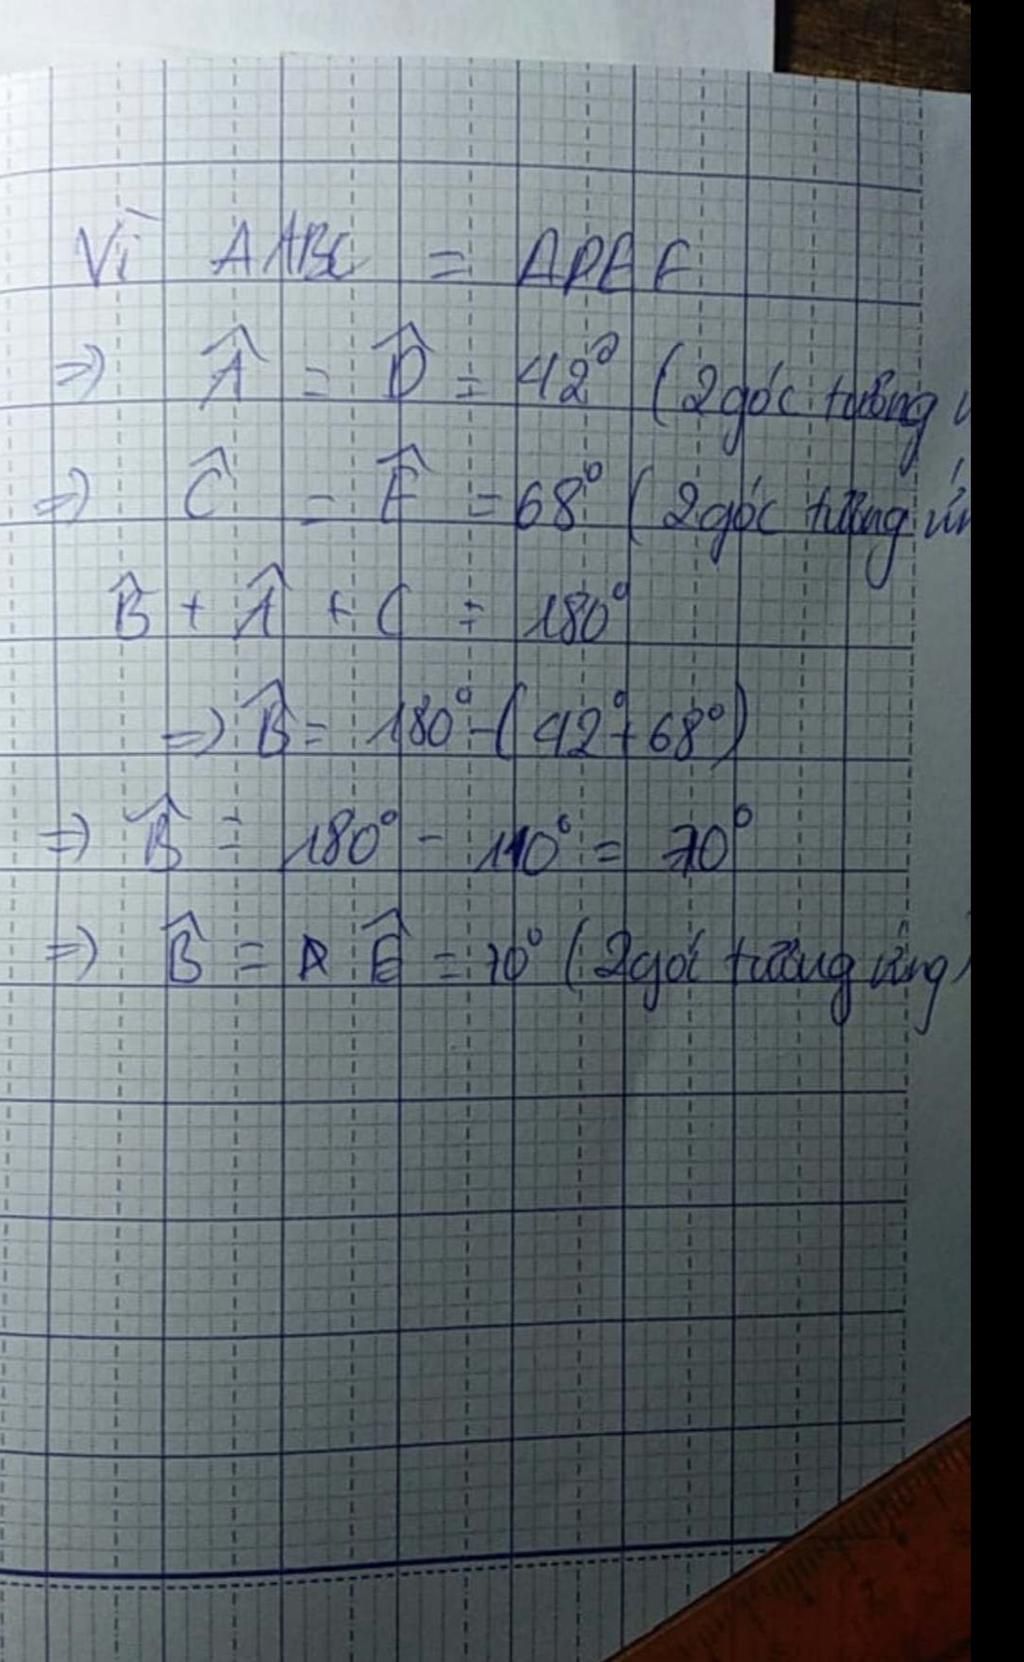 Vì ΔABC = ΔDEF
=> Â = D̂ = 42° (2 góc tương
=> Ĉ = F̂ = 68° (2 góc tương ứn
B̂ + Â + C = 180°
=> B̂ = 180° - (42° + 68°)
=> B̂ = 180° - 110° = 70°
=> B̂ = Ê = 70° (2 góc tương ứng)